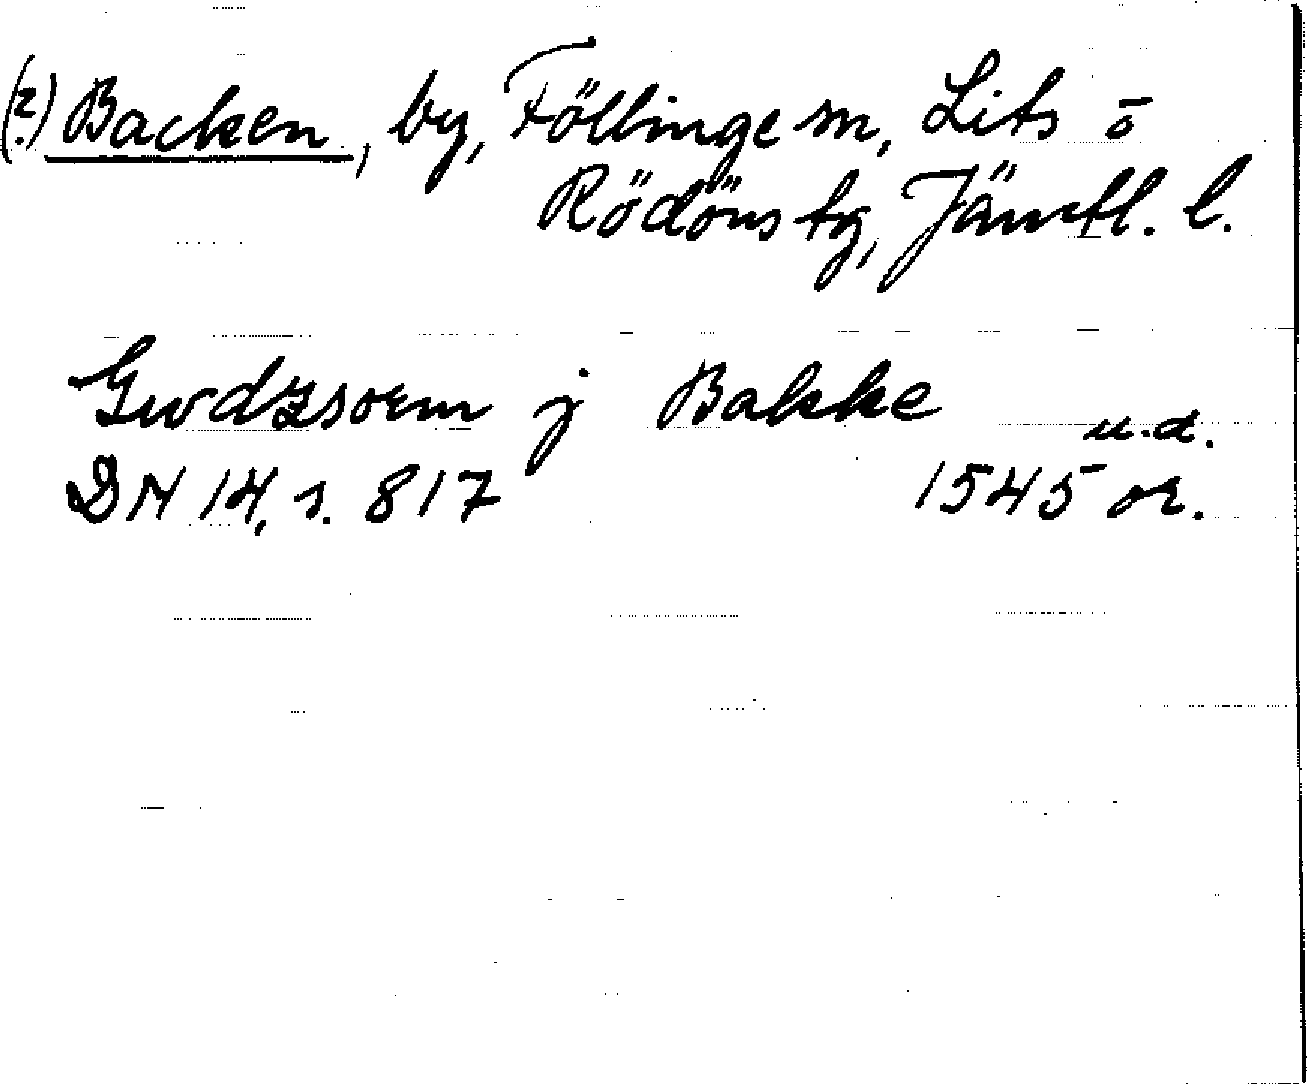 (?) Backen, by, Föllinge sn, Lits o
Rödöns tg, Jämtl. l.
Gwdzsoem j Bakke u.d.
DN 14, s. 817 1545 or.